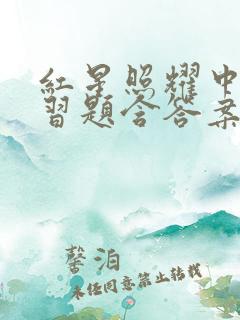 红星照耀中
习题含答案
馨泊
未经同意禁止转载